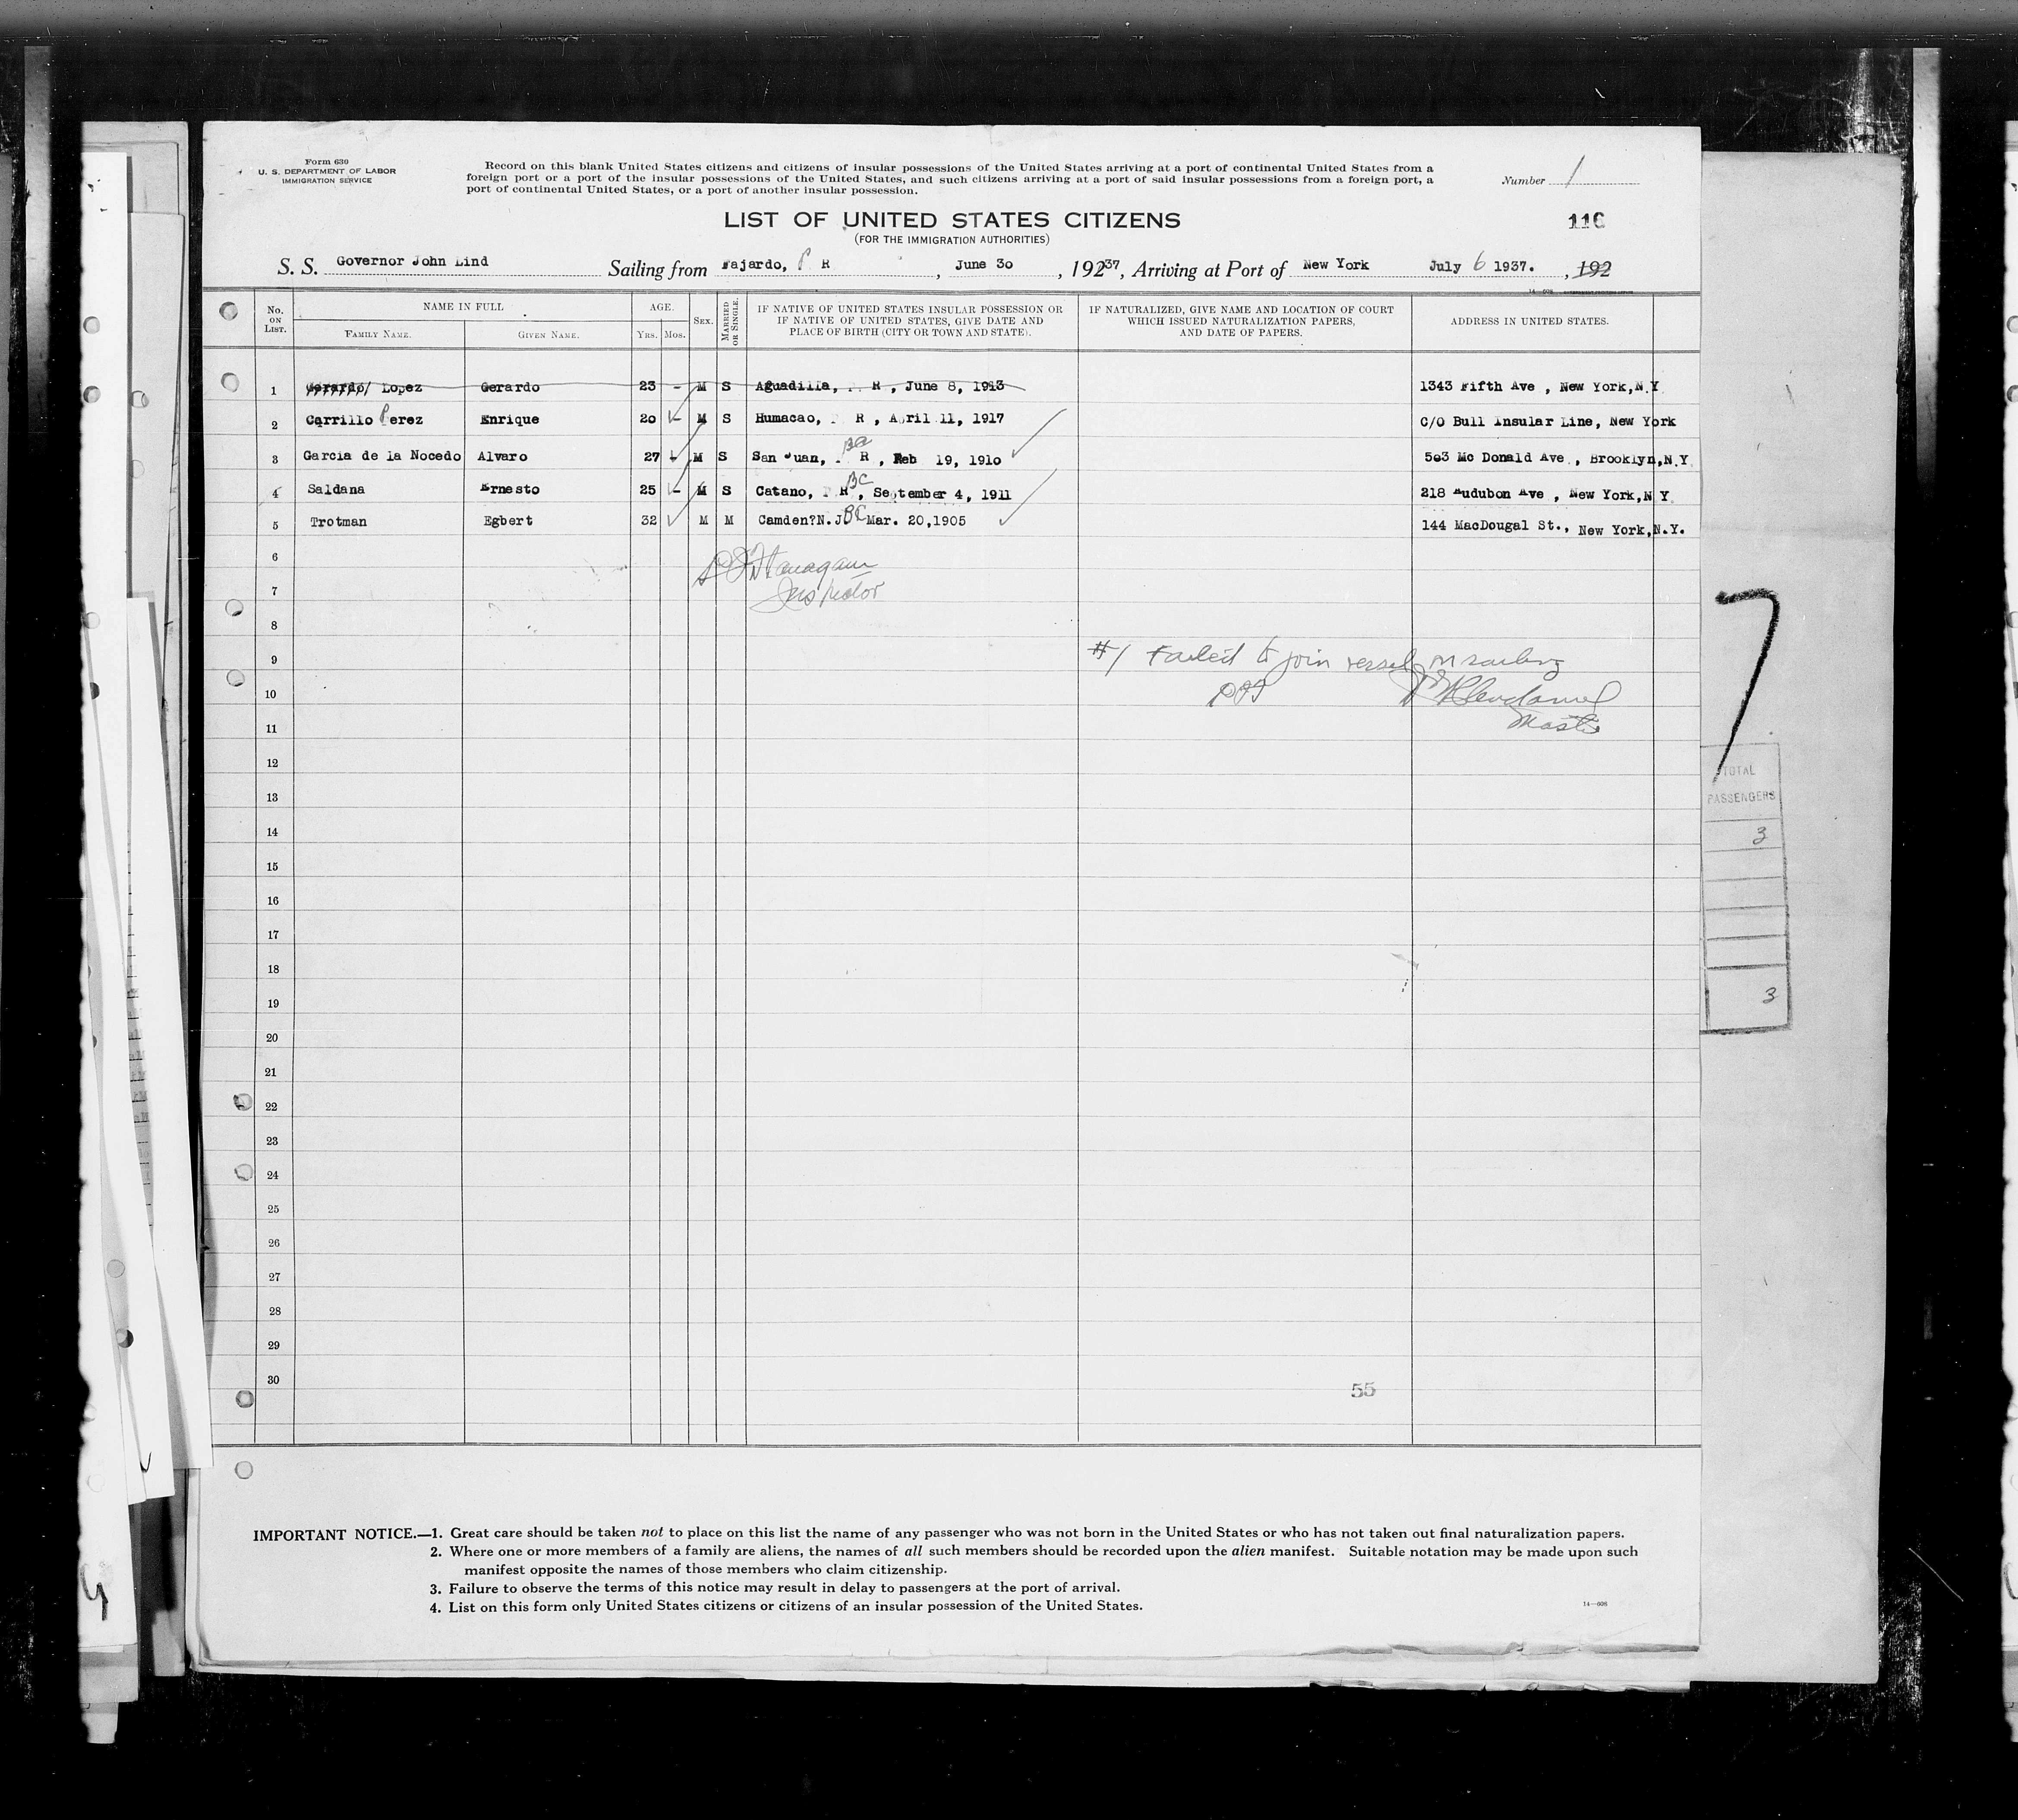 Form 630
U. S. DEPARTMENT OF LABOR
IMMIGRATION SERVICE
Record on this blank United States citizens and citizens of insular possessions of the United States arriving at a port of continental United States from a
foreign port or a port of the insular possessions of the United States, and such citizens arriving at a port of said insular possessions from a foreign port, a
port of continental United States, or a port of another insular possession.
Number 1
LIST OF UNITED STATES CITIZENS
(FOR THE IMMIGRATION AUTHORITIES)
116
S. S. Governor John Lind Sailing from Fajardo, P R , June 30 , 19237, Arriving at Port of New York July 6 1937. , 192
14—608
No. ON LIST. NAME IN FULL AGE. SEX. MARRIED OR SINGLE. IF NATIVE OF UNITED STATES INSULAR POSSESSION OR IF NATIVE OF UNITED STATES, GIVE DATE AND PLACE OF BIRTH (CITY OR TOWN AND STATE). IF NATURALIZED, GIVE NAME AND LOCATION OF COURT WHICH ISSUED NATURALIZATION PAPERS, AND DATE OF PAPERS. ADDRESS IN UNITED STATES.
FAMILY NAME. GIVEN NAME. YRS. MOS.
1 Gerardo/ Lopez Gerardo 23 - M S Aguadilla, R , June 8, 1913 1343 Fifth Ave , New York,N.Y
2 Carrillo Perez Enrique 20 - M S Humacao, R , April 11, 1917 C/O Bull Insular Line, New York
3 Garcia de la Nocedo Alvaro 27 - M S San Juan, R , Feb 19, 1910 503 Mc Donald Ave , Brooklyn,N.Y
4 Saldana Ernesto 25 - M S Catano, R BC , September 4, 1911 218 Audubon Ave , New York,N Y
5 Trotman Egbert 32 M M Camden?N.J BC Mar. 20,1905 144 MacDougal St., New York,N.Y.
6
Flanagan
7
Inspector
8
9
#1 Failed to join vessel on sailing
10
11
Master
12
13
14
15
16
17
18
19
20
21
22
23
24
25
26
27
28
29
30
55
7
TOTAL
PASSENGERS
3
3
IMPORTANT NOTICE.—1. Great care should be taken not to place on this list the name of any passenger who was not born in the United States or who has not taken out final naturalization papers.
2. Where one or more members of a family are aliens, the names of all such members should be recorded upon the alien manifest. Suitable notation may be made upon such
manifest opposite the names of those members who claim citizenship.
3. Failure to observe the terms of this notice may result in delay to passengers at the port of arrival.
4. List on this form only United States citizens or citizens of an insular possession of the United States.
14—608